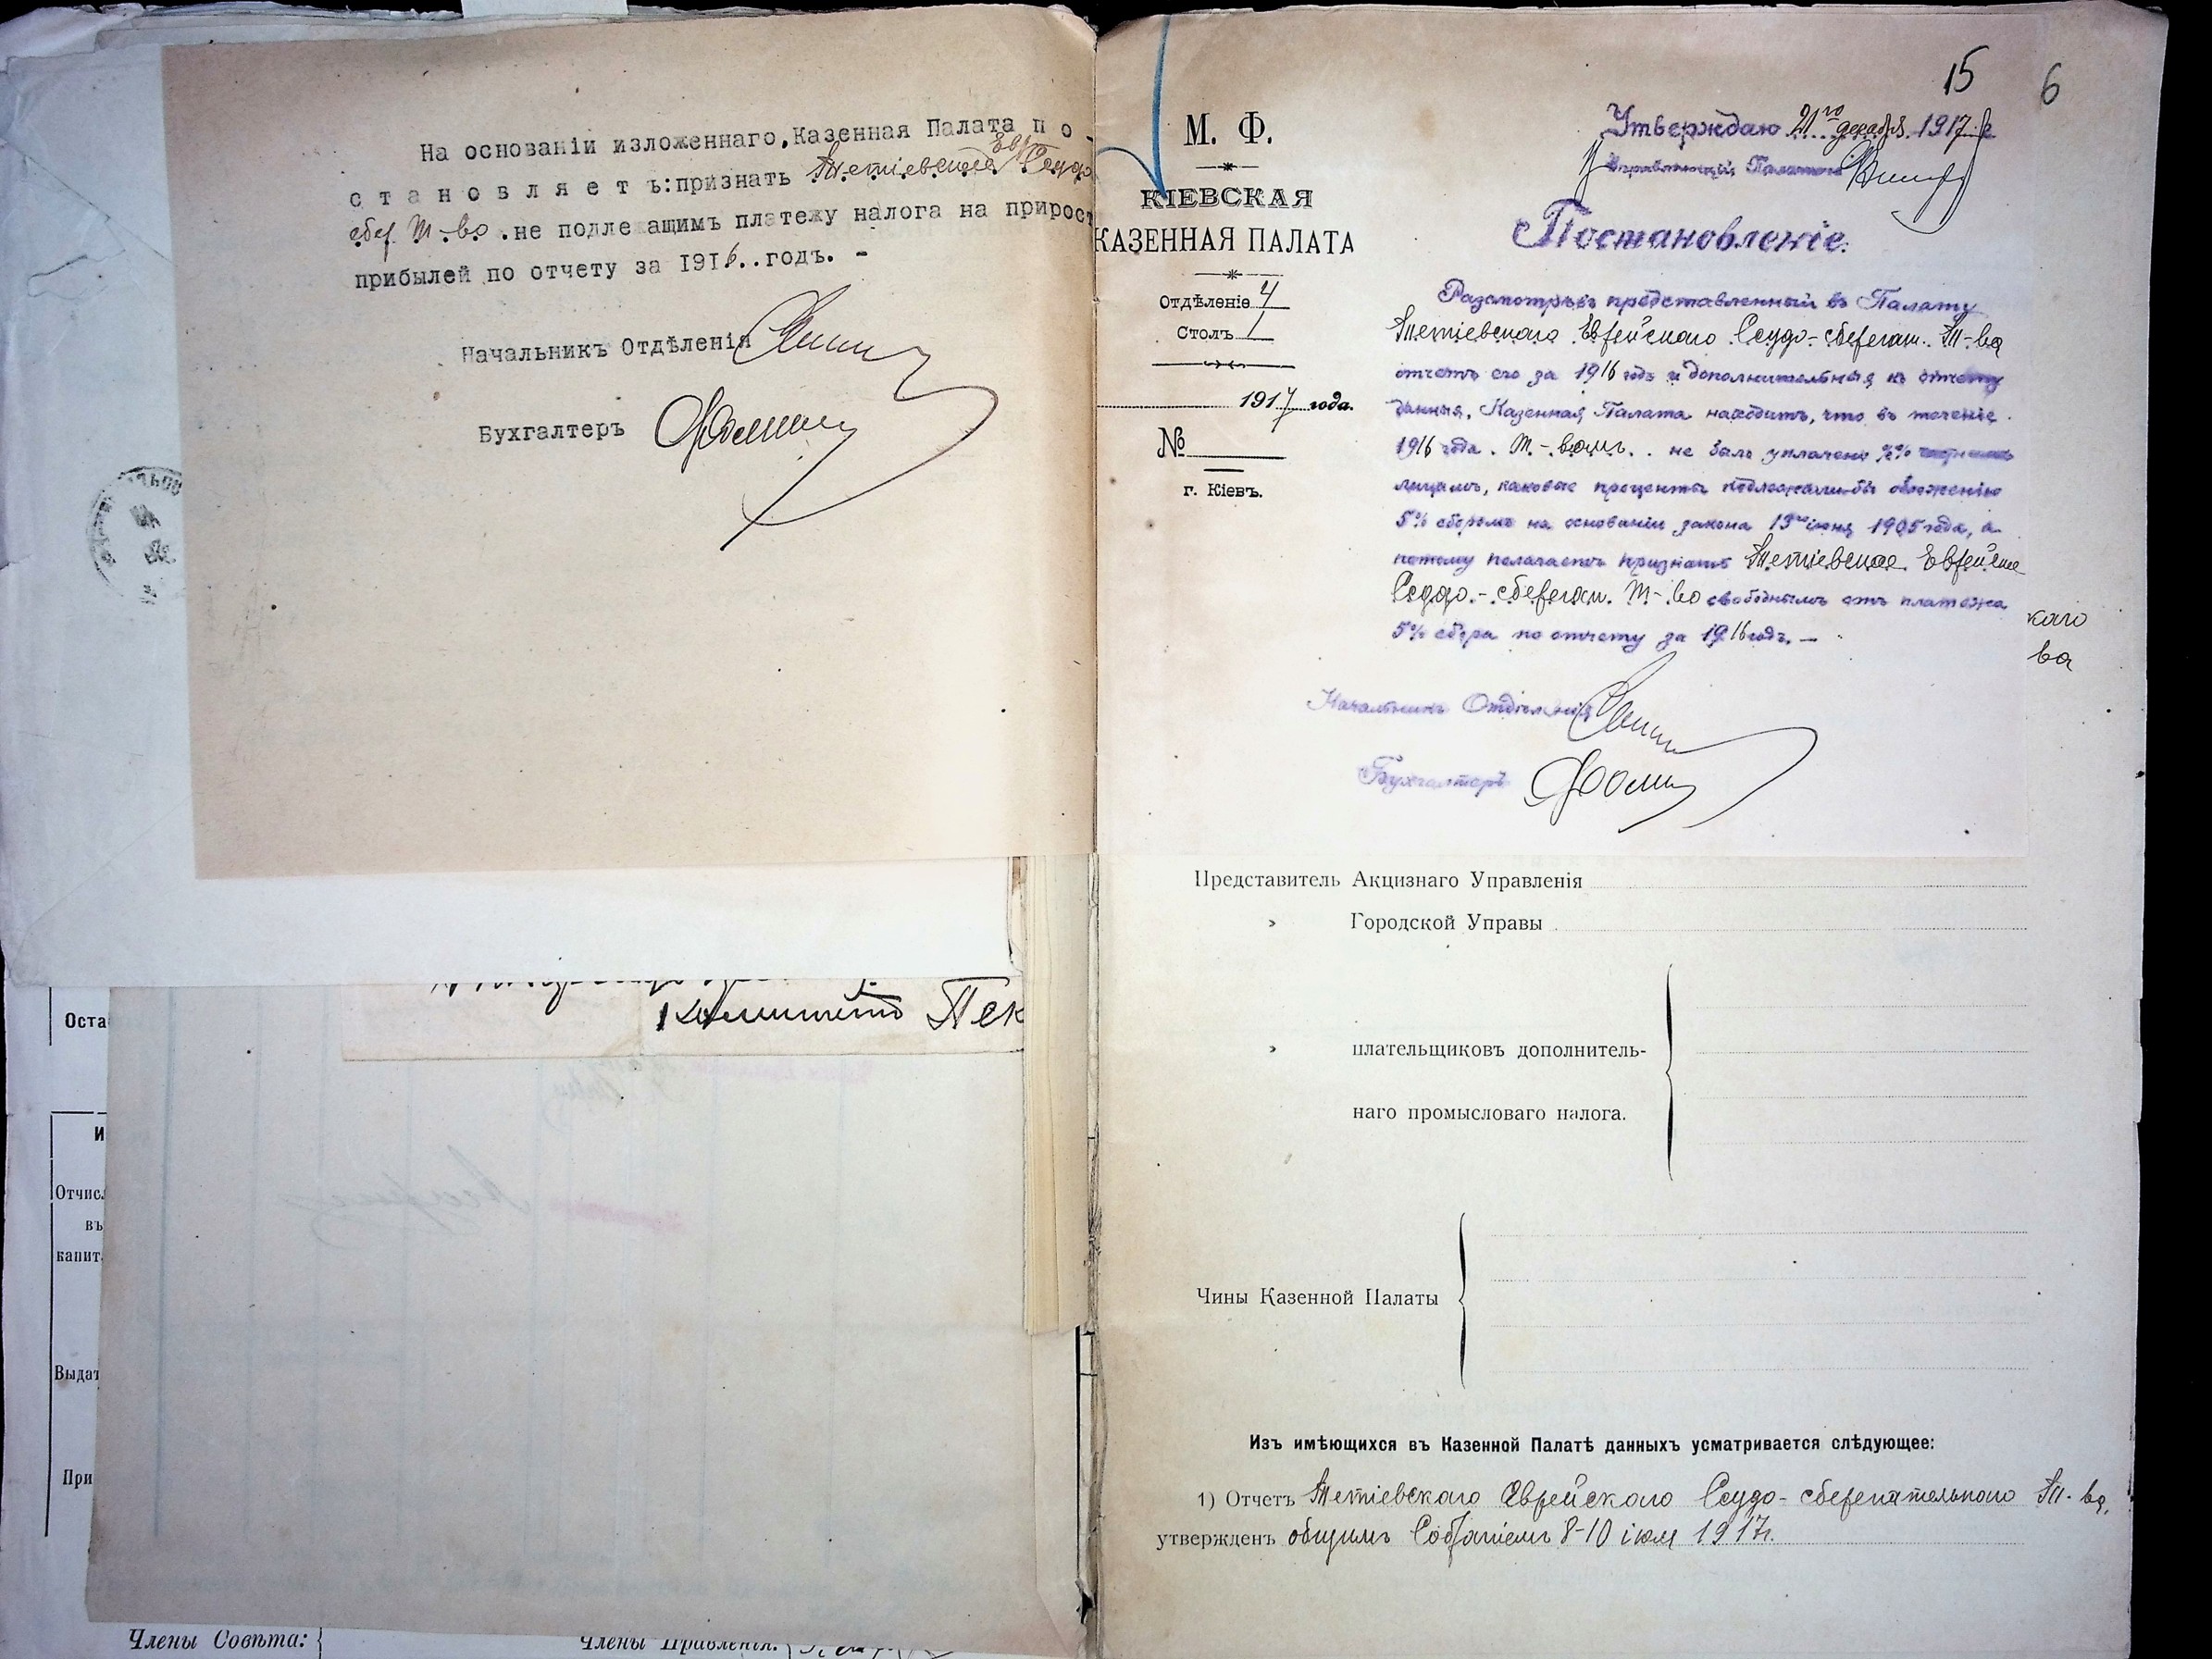 На основаніи изложеннаго,Казенная Палата п о -
с т а н о в л я е т ъ:признать Тетіевское Евр. Ссудо
сбер. Т-во .не подлежащимъ платежу налога на прирост
прибылей по отчету за 1916..годъ. -
Начальникъ Отдѣленія
Бухгалтеръ
Комитетъ
Оста
И
Отчис
въ
капит
Выдат
При
Члены Совѣта:
Члены Правленія:
15
6
М. Ф.
КІЕВСКАЯ
КАЗЕННАЯ ПАЛАТА
Отдѣленіе 4
Столъ 1
1917 года.
№
г. Кіевъ.
Утверждаю 21го декабря 1917 г
Управляющій Палатою
Постановленіе.
Разсмотрѣвъ представленный въ Палату
Тетіевскаго Еврейскаго Ссудо-сберегат. Т-ва
отчетъ его за 1916 годъ и дополнительныя къ отчету
данныя, Казенная Палата находитъ, что въ теченіе
1916 года. Т-вомъ.. не было уплачено %%
лицамъ, каковые проценты подлежали бы обложенію
5% сборомъ на основаніи закона 13го іюня 1905 года, а
потому полагаетъ признать Тетіевское Еврейское
Ссудо-сберегат. Т-во свободнымъ отъ платежа
каго
5% сбора по отчету за 1916 годъ. —
ва
Начальникъ Отдѣленія
Бухгалтеръ
Представитель Акцизнаго Управленія
» Городской Управы
» плательщиковъ дополнитель-
наго промысловаго налога.
Чины Казенной Палаты
Изъ имѣющихся въ Казенной Палатѣ данныхъ усматривается слѣдующее:
1) Отчетъ Тетіевскаго Еврейскаго Ссудо-сберегательнаго Т-ва,
утвержденъ общимъ Собраніемъ 8-10 іюля 1917г.